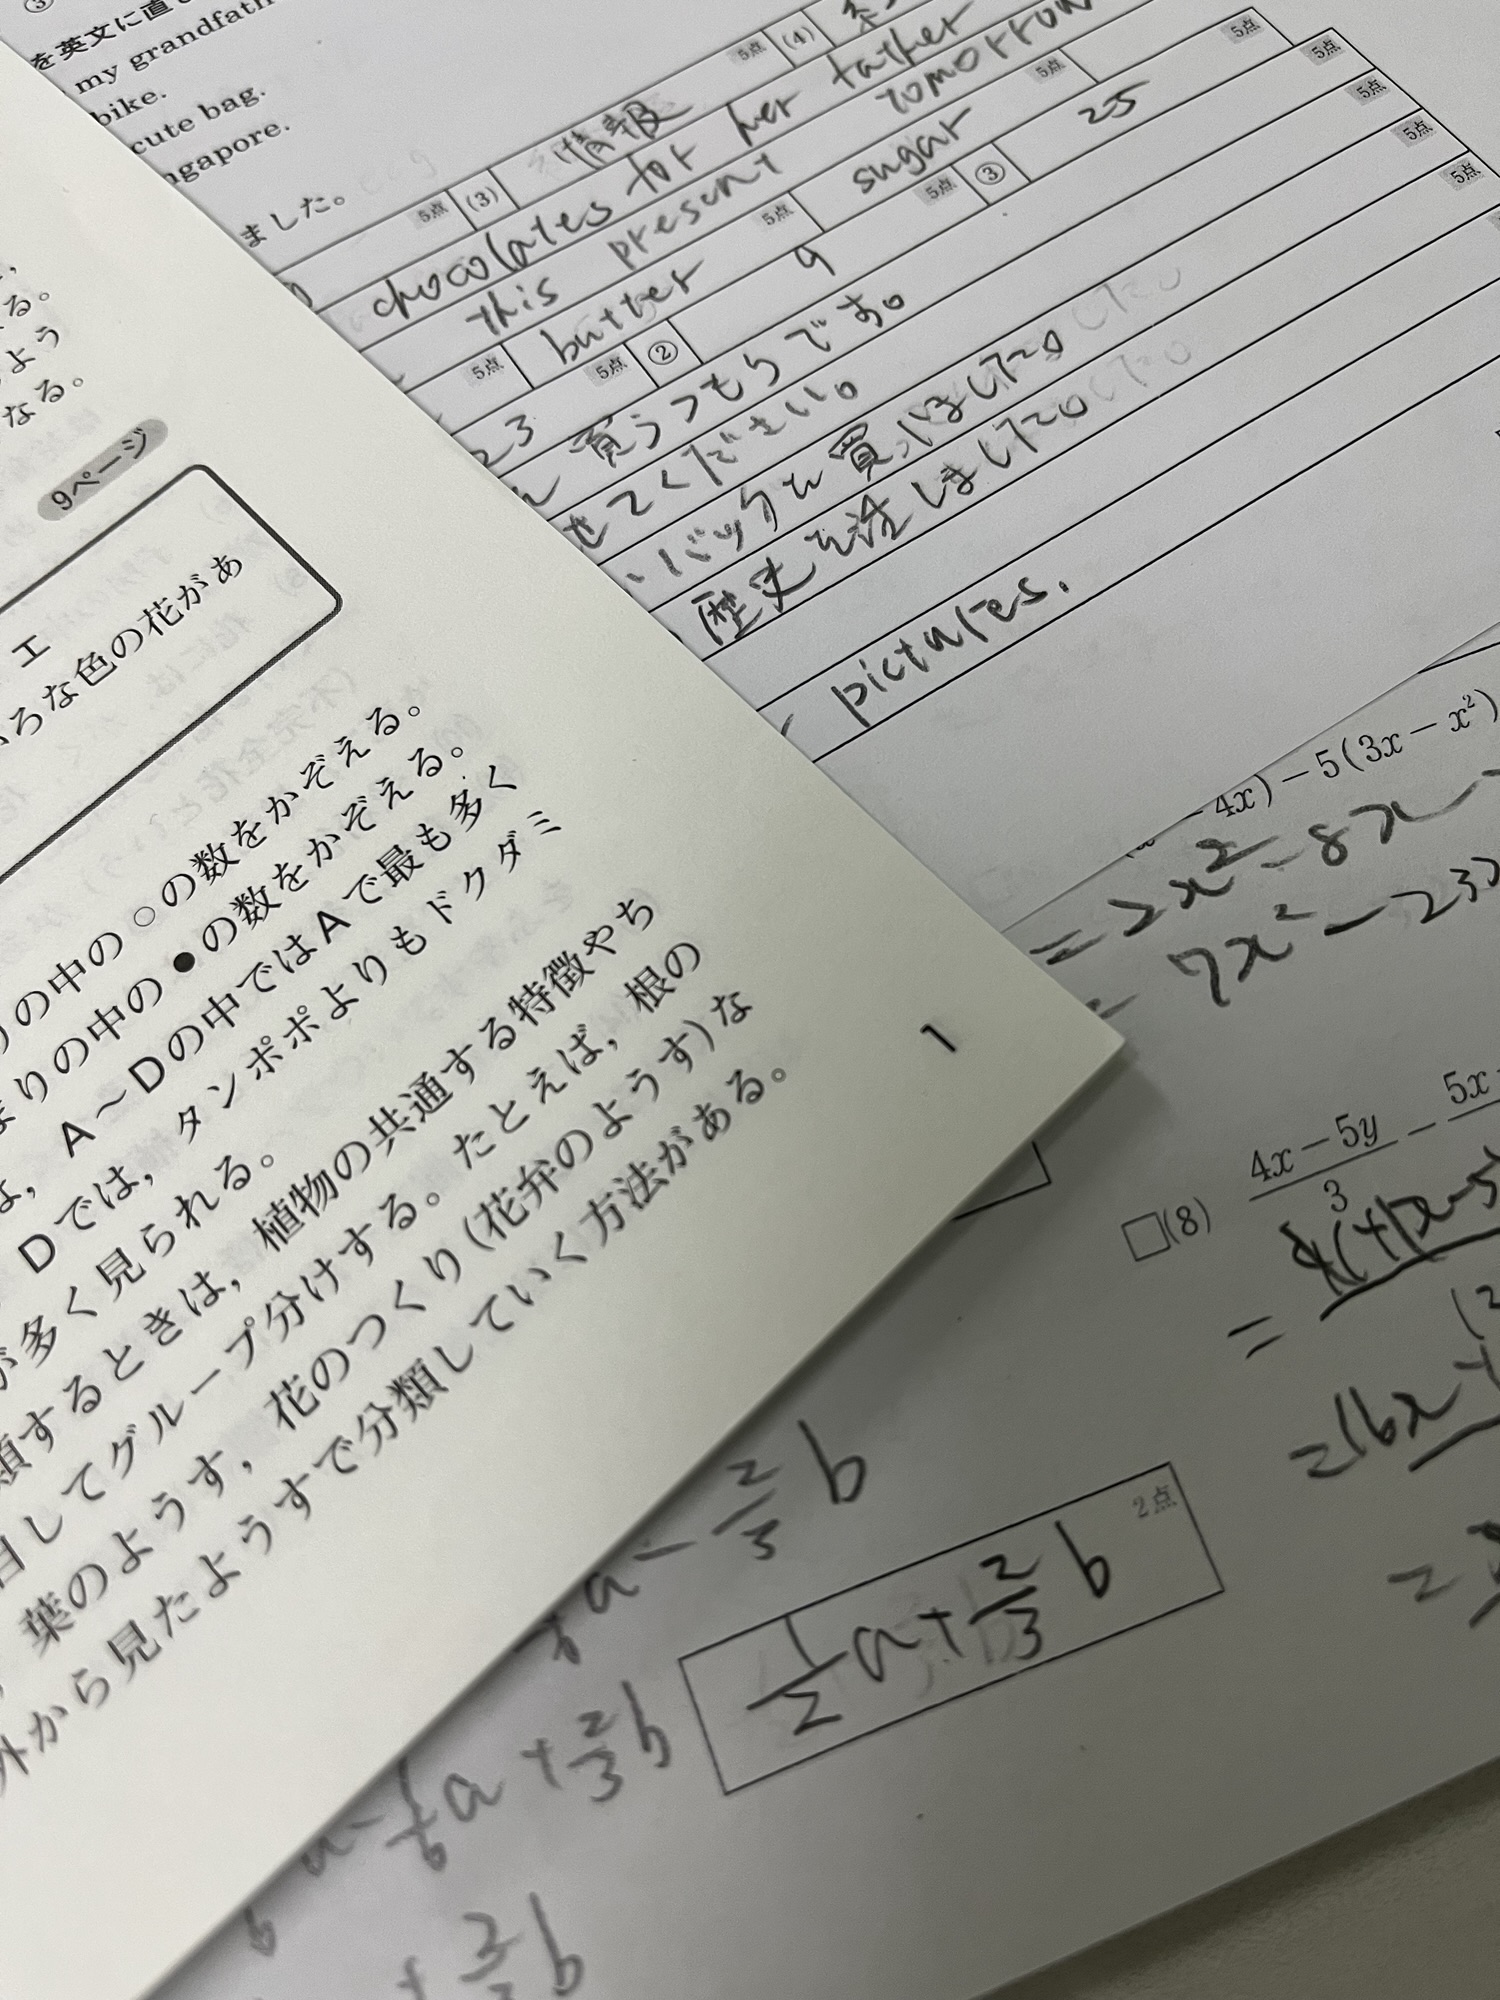 を英文に直
my grandfath
bike.
cute bag.
ngapore.
ました。
5点 (3) 情報 5点 (4)
chocolates for her father
this present tomorrow
5点 butter 5点 sugar 5点 5点
23 5点 ② 9 5点 ③ 25 5点
買うつもりです。 5点
せてください。 5点
バックを買いました。 5点
歴史を注しました。 5点
pictures.
る。
よう
なる。
9ページ
エ
ろな色の花があ
の中の○の数をかぞえる。
まりの中の●の数をかぞえる。
は，A～Dの中ではAで最も多く
Dでは，タンポポよりもドクダミ
が多く見られる。
類するときは，植物の共通する特徴やち
目してグループ分けする。たとえば，根の
葉のようす，花のつくり(花弁のようす)な
外から見たようすで分類していく方法がある。
1
4x) − 5(3x − x²)
= 2x² − 8x
= 7x² − 23x
□(8) 4x − 5y / 3 − 5x
=
= 16x
=
a − 2/3 b
2点
1/2 a + 2/3 b
1/6 a + 2/3 b
+ 2/3 b